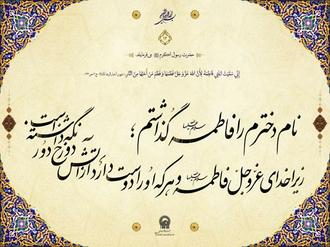 حضرت رسول اکرم می‌فرمایند:
إنّی سَمَّیتُ ابنَتِی فاطِمَةَ لِأنَّ اللهَ عَزَّوَجَلَّ فَطَمَها وَ فَطَمَ مَن أحَبَّها مِنَ النّارِ
نام دخترم را فاطمه گذاشتم؛
زیرا خدای عزّوجلّ فاطمه و هر که او را دوست دارد از آتش دوزخ دور نگه داشته است.